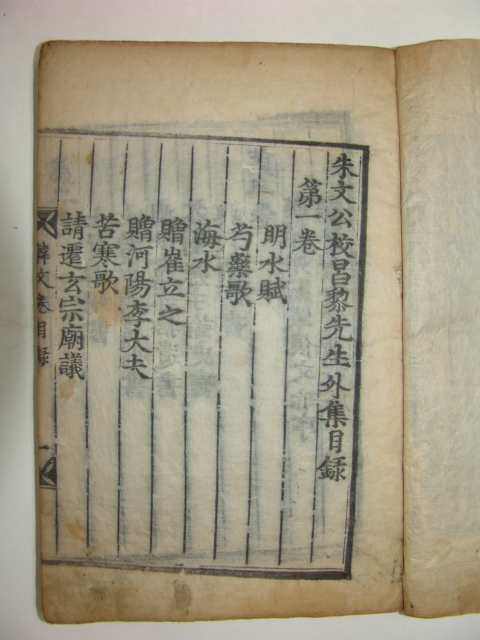 朱文公校昌黎先生外集目録
第一卷
明水賦
芍藥歌
海水
贈崔立之
贈河陽李大夫
苦寒歌
請遷玄宗廟議
韓文卷目録 一